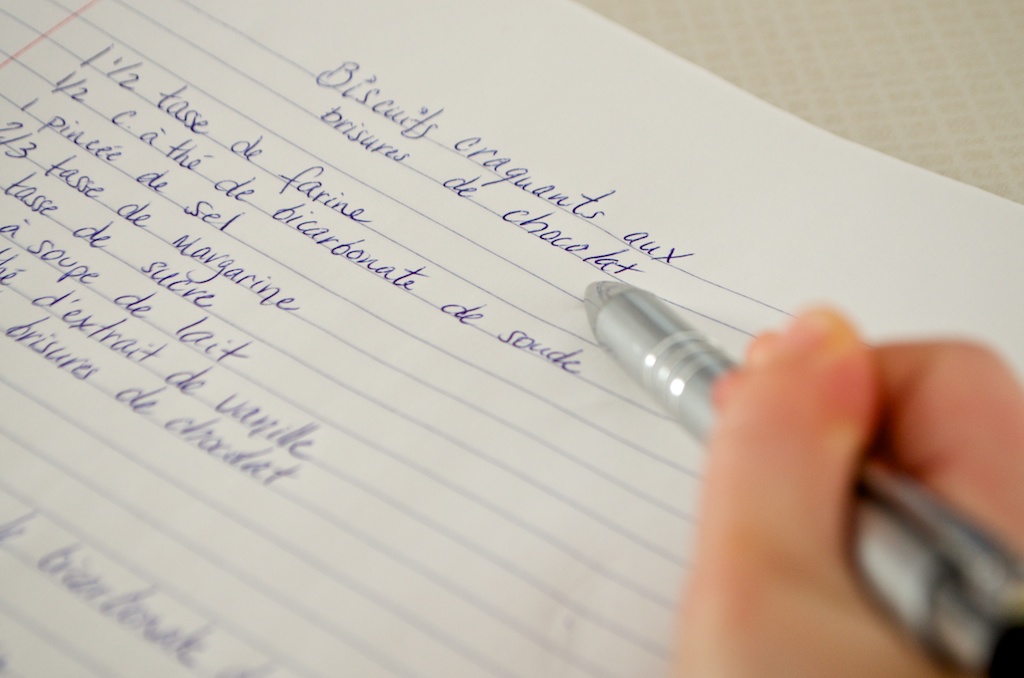 Biscuits craquants aux
brisures de chocolat
1 1/2 tasse de farine
1/2 c. à thé de bicarbonate de soude
1 pincée de sel
2/3 tasse de margarine
tasse de sucre
à soupe de lait
thé d'extrait de vanille
brisures de chocolat